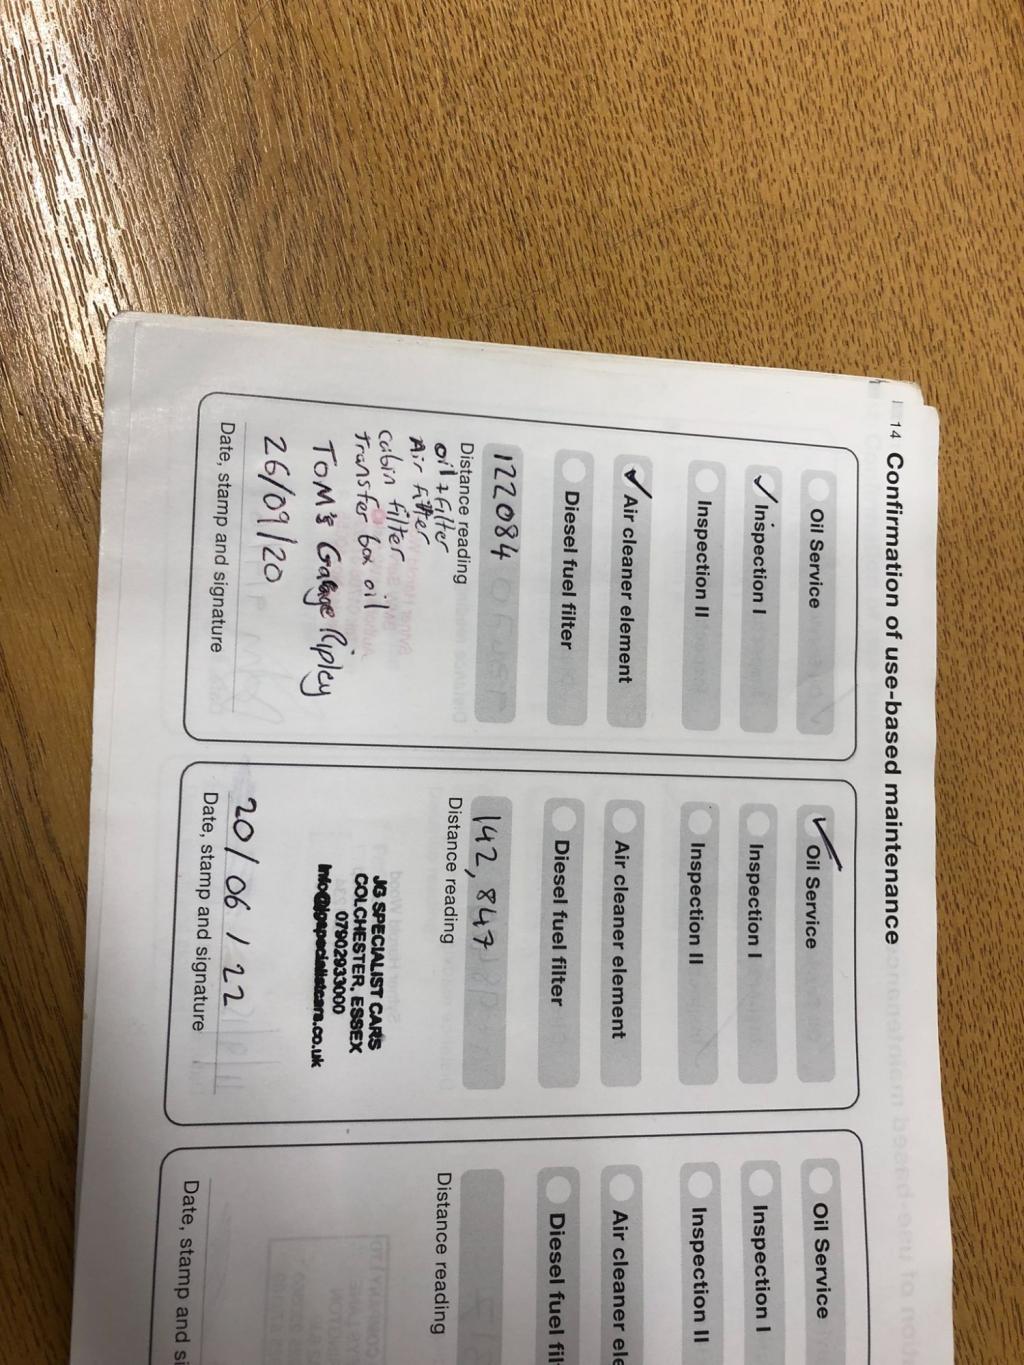 14 Confirmation of use-based maintenance
Oil Service
✓ Inspection I
Inspection II
✓ Air cleaner element
Diesel fuel filter
122084
Distance reading
oil + filter
Air filter
cabin filter
transfer box oil
TOM's Garage Ripley
26/09/20
Date, stamp and signature
✓ Oil Service
Inspection I
Inspection II
Air cleaner element
Diesel fuel filter
142,847
Distance reading
JG SPECIALIST CARS
COLCHESTER, ESSEX
07902933000
info@jgspecialistcars.co.uk
20/06/22
Date, stamp and signature
Oil Service
Inspection I
Inspection II
Air cleaner ele
Diesel fuel filt
Distance reading
Date, stamp and si